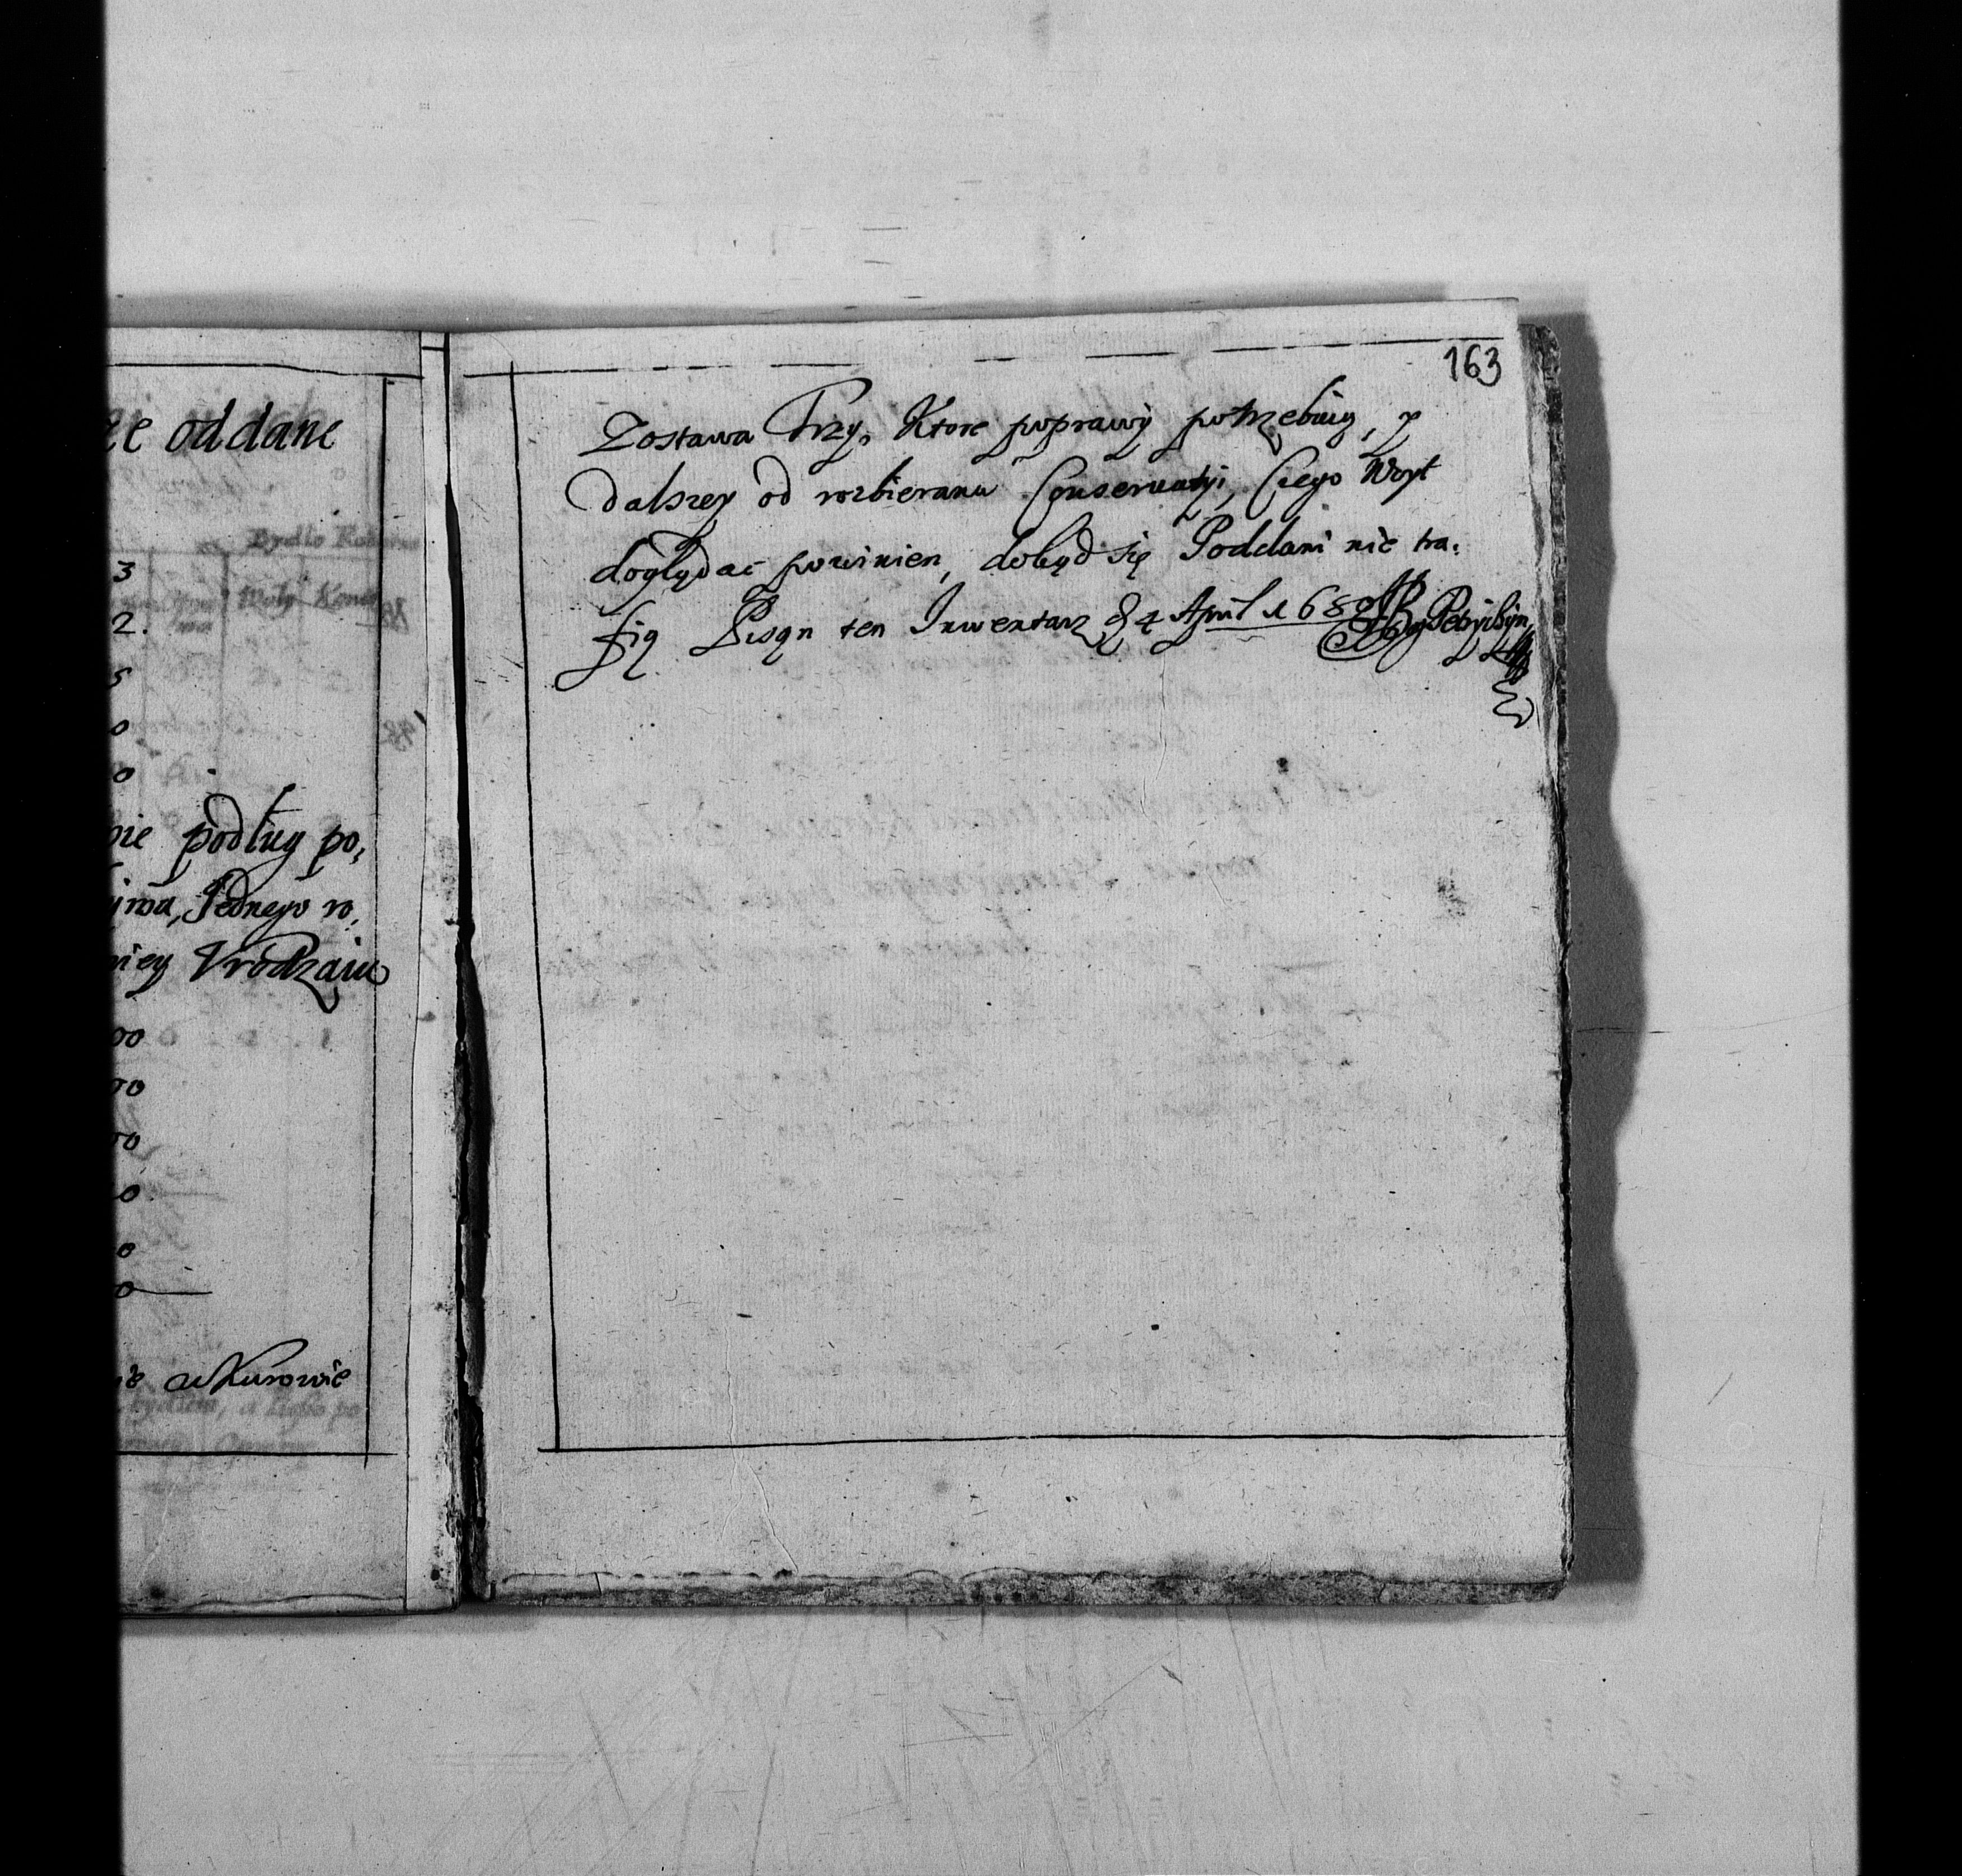 ze oddane
3
2.
5
0
0
pie podług po,
Jednego ro,
niey Vrodzaiu
00
00
00
0.
0
0
w Kurowie
163
Zostawa Trzy, Ktore poprawy potrzebuią, y
dalszey od rozbierania Conserwatyi, czego Woyt
doglądać powinien, dokąd się Poddani nie tra,
fią Pisan ten Inwentarz 4 April 168